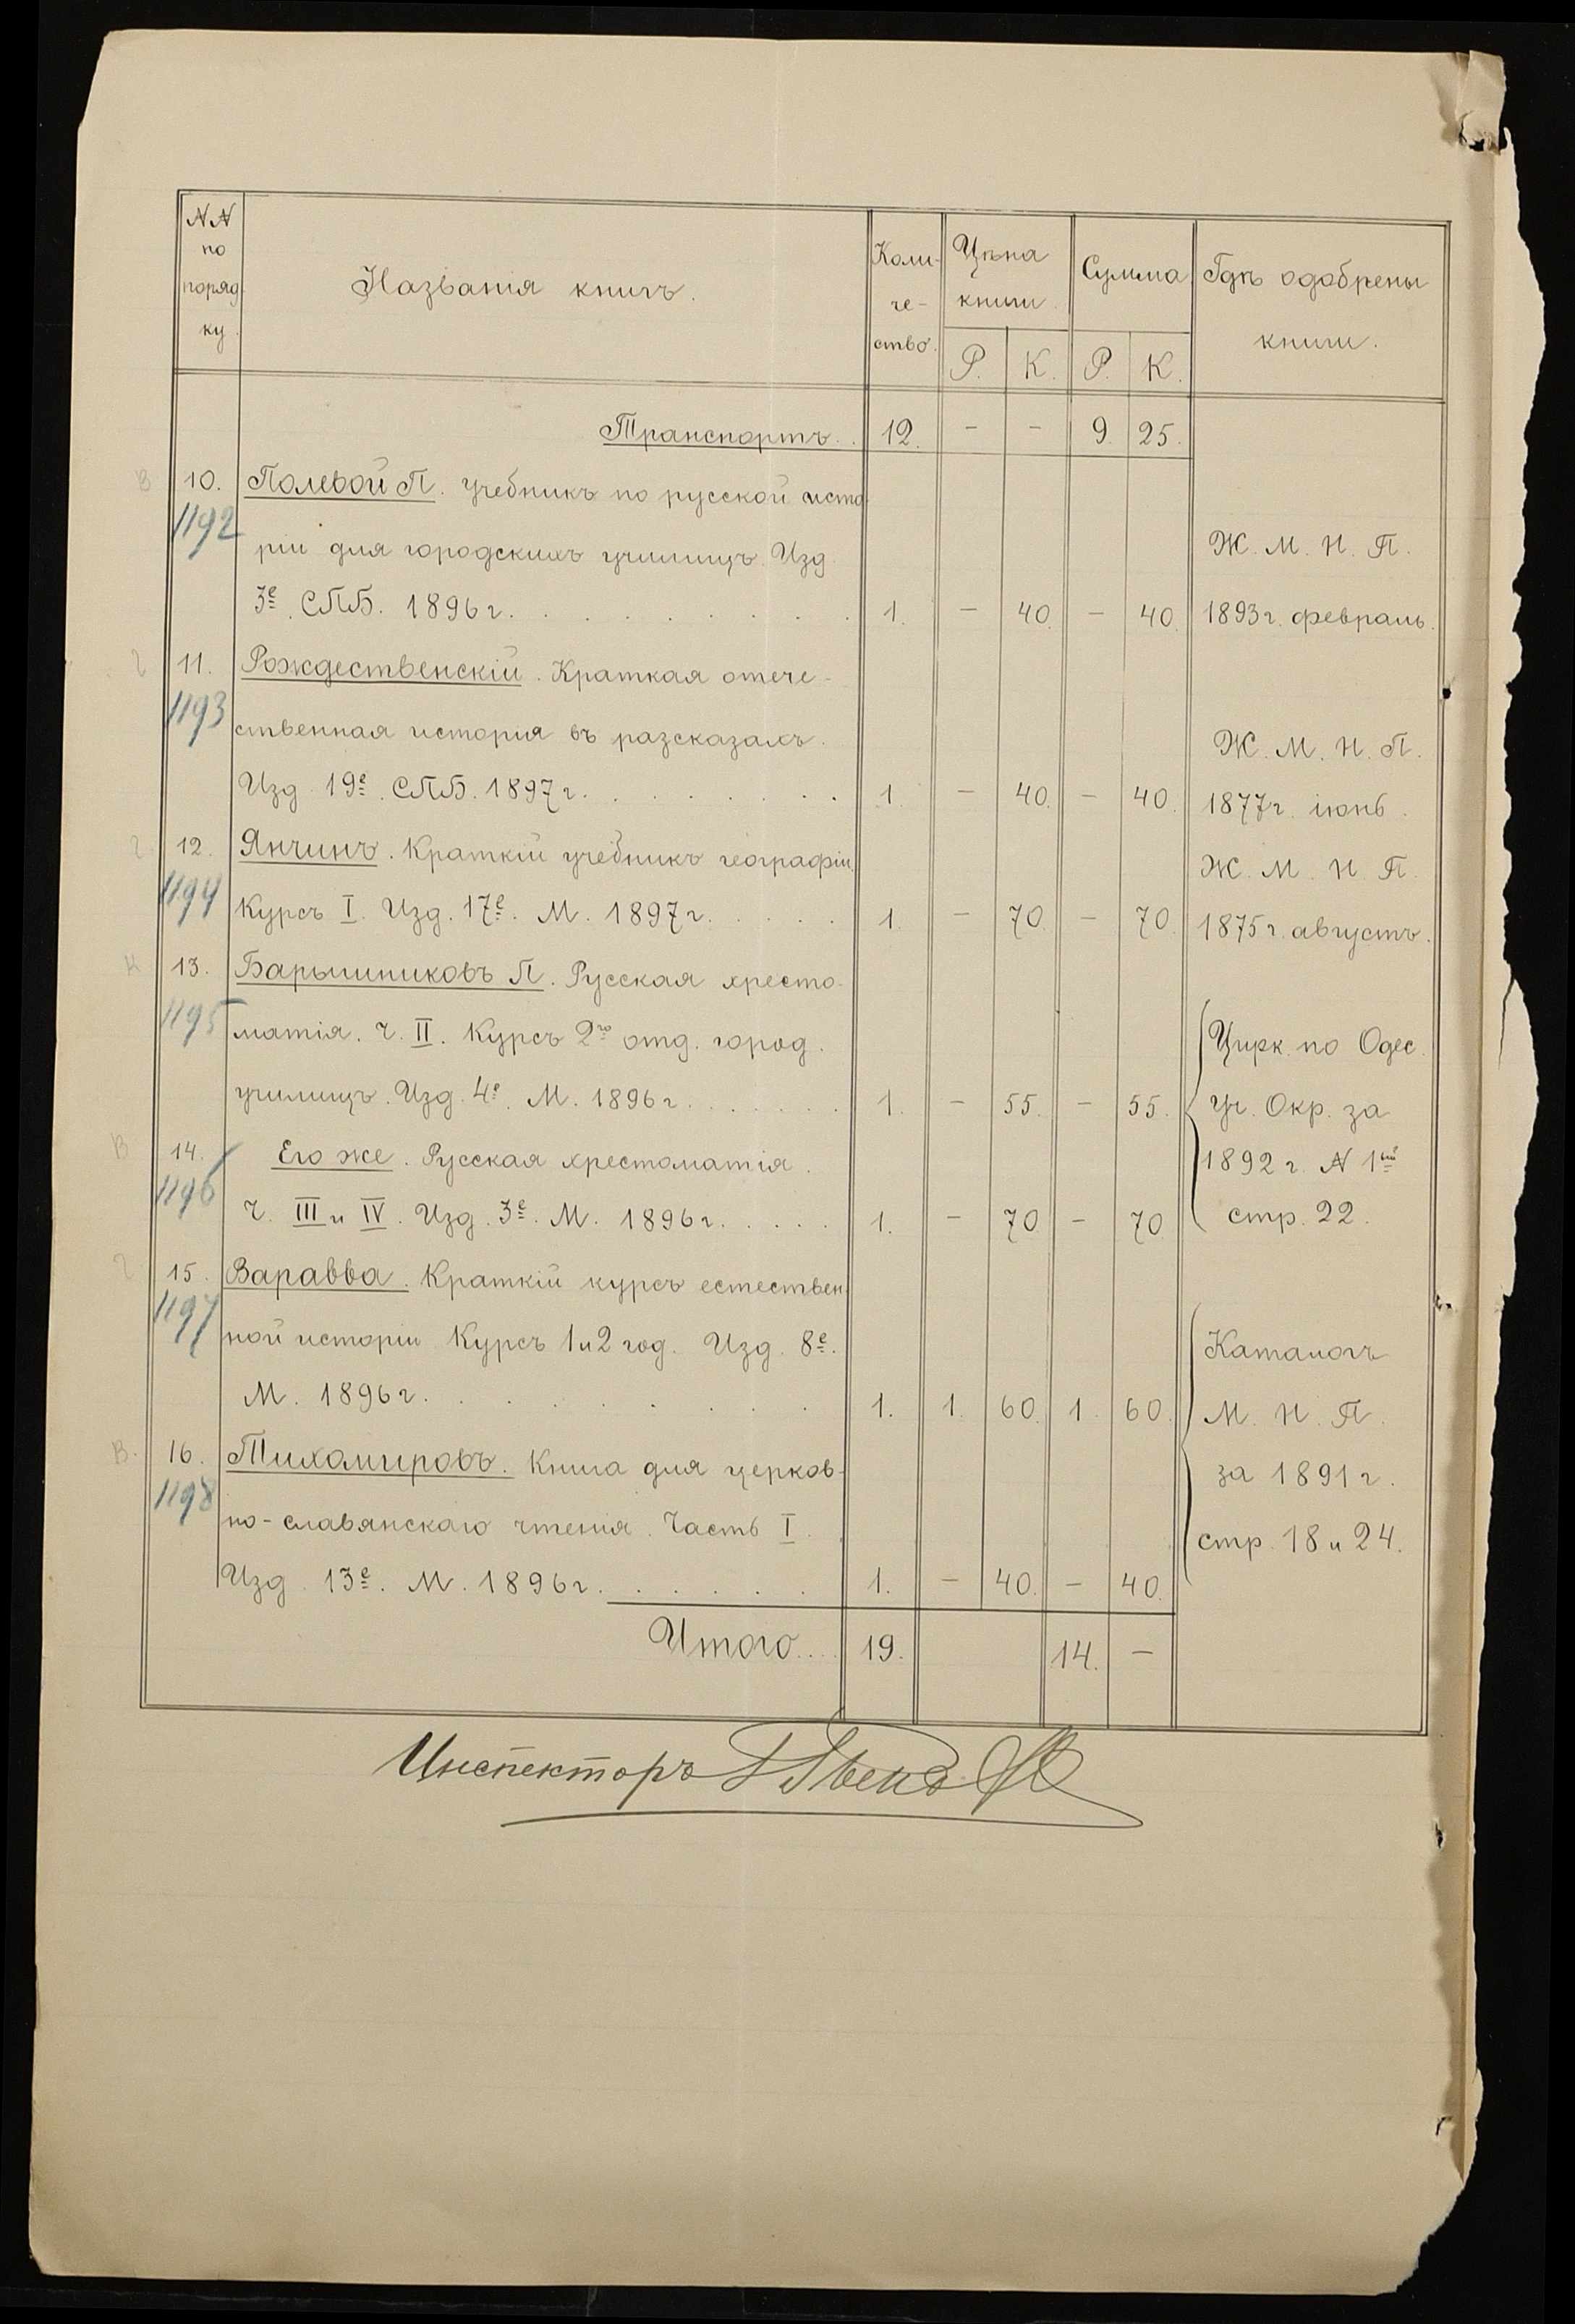 NN по поряд ку.
Названія книгъ.
Коли- че- ство.
Цѣна книги.
Сумма
Гдѣ одобрены книги.
Р. К. Р. К.
Транспортъ. 12. - - 9. 25.
10. Полевой П. Учебникъ по русской исто
1192 ріи для городскихъ училищъ. Изд. Ж. М. Н. П.
3е. СПБ. 1896 г. 1. - 40. - 40. 1893 г. февраль.
11. Рождественскій. Краткая отече-
1193 ственная исторія въ разсказахъ. Ж. М. Н. П.
Изд. 19е. СПБ. 1897 г. 1 - 40. - 40. 1877 г. іюнь.
12. Янчинъ. Краткій учебникъ географіи. Ж. М. Н. П.
1194 Курсъ I. Изд. 17е. М. 1897 г. 1. - 70. - 70. 1875 г. августъ.
13. Барышниковъ П. Русская христо-
1195 матія. Ч. II. Курсъ 2го отд. город. Цирк. по Одес.
училищъ. Изд. 4е. М. 1896 г. 1. - 55. - 55. Уч. Окр. за
14. Его же. Русская хрестоматія. 1892 г. N 1ый
1196 Ч. III и IV. Изд. 3е. М. 1896 г. 1. - 70 - 70 стр. 22.
15. Варавва. Краткій курсъ естествен-
1197 ной исторіи. Курсъ 1 и 2 год. Изд. 8е. Каталогъ
М. 1896 г. 1. 1. 60. 1. 60. М. Н. П.
16. Тихомировъ. Книга для церков- за 1891 г.
1198 но-славянскаго чтенія. Часть I. стр. 18 и 24.
Изд. 13е. М. 1896 г. 1. - 40. - 40.
Итого.... 19. 14. -
Инспекторъ